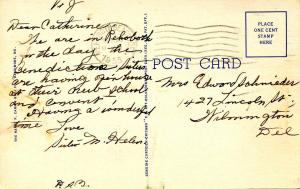 Dear Catherine
We are in Rehoboth
for the day the
Benedictine Sisters
are having open house
at their new school
and convent
Having a wonderful
time Love
Sister M Helen
POST CARD
PLACE
ONE CENT
STAMP
HERE
Mrs Edward Schnieder
1427 Lincoln St.
Wilmington
Del